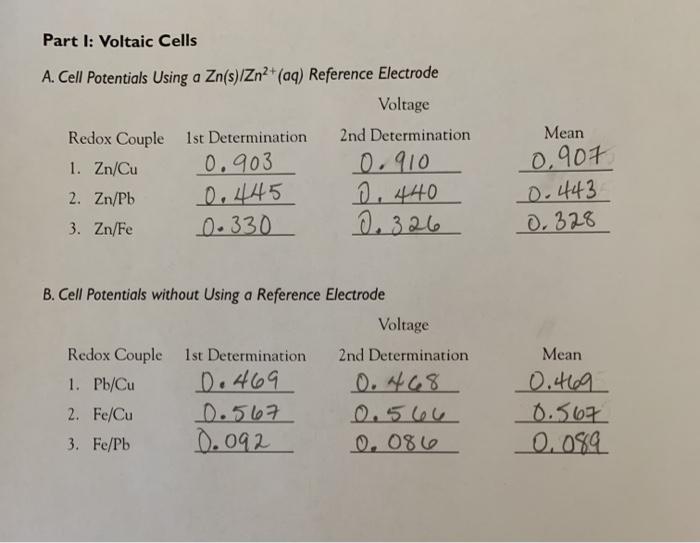 Part I: Voltaic Cells
A. Cell Potentials Using a Zn(s)/Zn²⁺(aq) Reference Electrode
Voltage
Redox Couple 1st Determination 2nd Determination Mean
1. Zn/Cu 0.903 0.910 0.907
2. Zn/Pb 0.445 0.440 0.443
3. Zn/Fe 0.330 0.326 0.328
B. Cell Potentials without Using a Reference Electrode
Voltage
Redox Couple 1st Determination 2nd Determination Mean
1. Pb/Cu 0.469 0.468 0.469
2. Fe/Cu 0.567 0.566 0.567
3. Fe/Pb 0.092 0.086 0.089